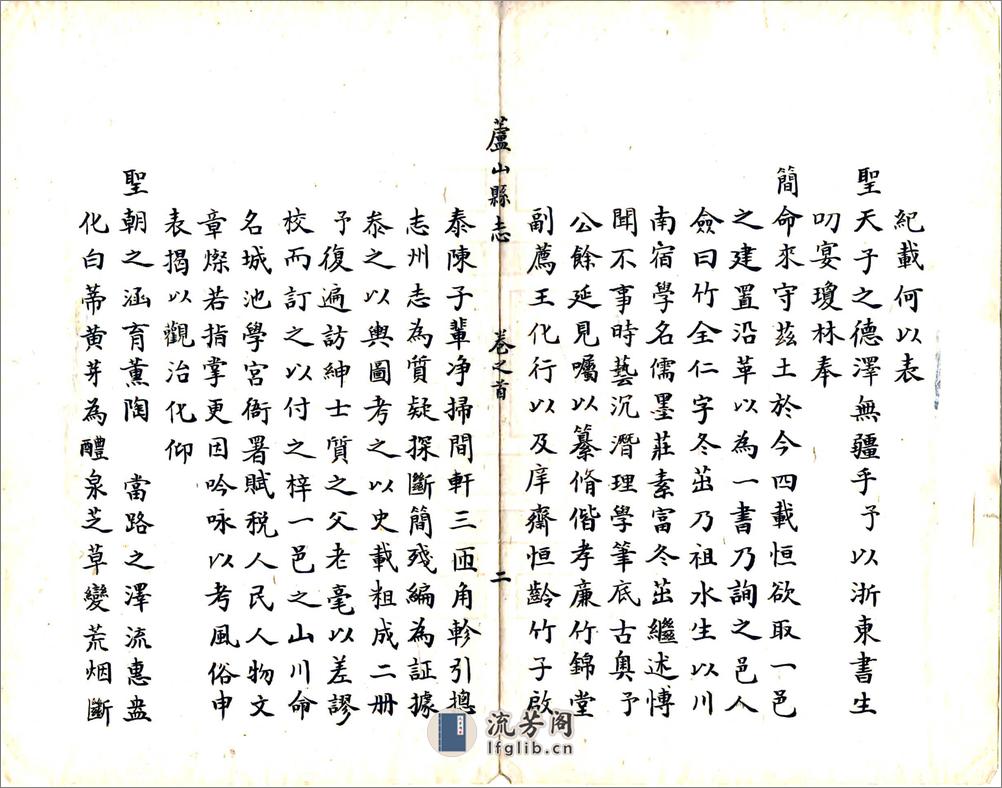 紀載何以表
聖天子之德澤無疆乎予以浙東書生
叨宴瓊林奉
簡命來守茲土於今四載恒欲取一邑
之建置沿革以為一書乃詢之邑人
僉曰竹全仁字冬茁乃祖水生以川
南宿學名儒墨莊素富冬茁繼述博
聞不事時藝沉潛理學筆底古奧予
公餘延見囑以纂脩偕孝廉竹錦堂
副薦王化行以及庠齋恒齡竹子啟
蘆山縣志 卷之首 二
泰陳子輩净掃間軒三匝角軫引摠
志州志為質疑探斷簡殘編為証據
泰之以輿圖考之以史載粗成二册
予復遍訪紳士質之父老毫以差謬
校而訂之以付之梓一邑之山川命
名城池學宮衙署賦稅人民人物文
章燦若指掌更因吟咏以考風俗申
表揭以觀治化仰
聖朝之涵育薰陶 當路之澤流惠盎
化白蒂黄芽為醴泉芝草變荒烟斷
流芳阁
lfglib.cn